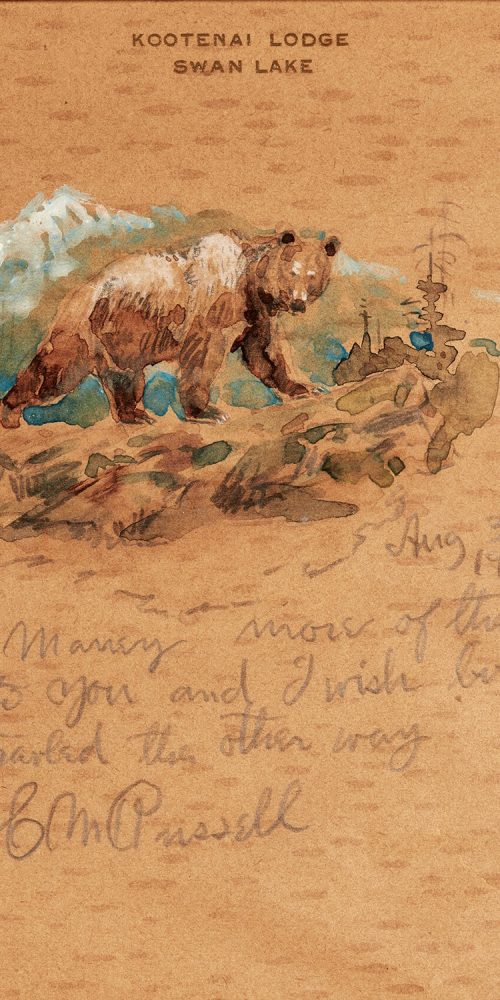 KOOTENAI LODGE
SWAN LAKE
Aug
Maney more of
You and I wish
the other way
C M Russell